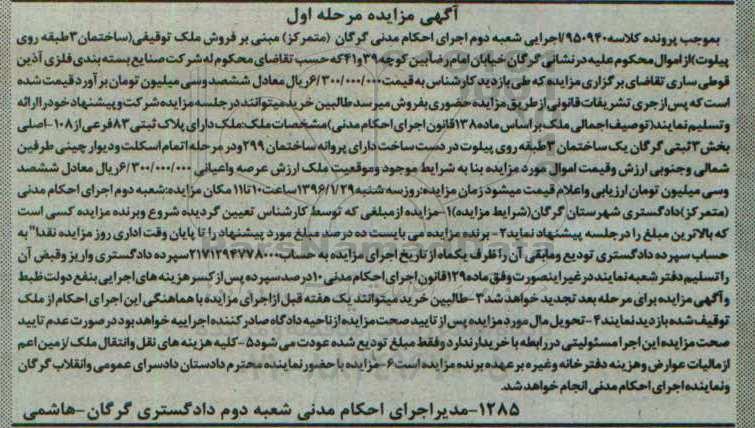 آگهی مزایده مرحله اول
بموجب پرونده کلاسه۹۵۰۹۴۰/اجرایی شعبه دوم اجرای احکام مدنی گرگان (متمرکز) مبنی بر فروش ملک توقیفی(ساختمان۳طبقه روی
پیلوت)ازاموال محکوم علیه درنشانی گرگان خیابان امام رضابین کوچه۳۹و۴۱که حسب تقاضای محکوم له شرکت صنایع بسته بندی فلزی آذین
قوطی ساری تقاضای برگزاری مزایده که طی بازدید کارشناس به قیمت۶/۳۰۰/۰۰۰/۰۰۰ریال معادل ششصد وسی میلیون تومان برآورد قیمت شده
است که پس ازجری تشریفات قانونی ازطریق مزایده حضوری بفروش میرسد طالبین خرید میتوانند درجلسه مزایده شرکت و پیشنهاد خودرا ارائه
وتسلیم نمایند(توصیف اجمالی ملک براساس ماده۱۳۸قانون اجرای احکام مدنی)مشخصات ملک:ملک دارای پلاک ثبتی۸۳فرعی از۱۰۸-اصلی
بخش۳ثبتی گرگان یک ساختمان ۳طبقه روی پیلوت در دست ساخت دارای پروانه ساختمان ۲۹۹ودر مرحله اتمام اسکلت ودیوار چینی طرفین
شمالی وجنوبی ارزش وقیمت اموال مورد مزایده بنا به شرایط موجود وموقعیت ملک ارزش عرصه واعیانی ۶/۳۰۰/۰۰۰/۰۰۰ریال معادل ششصد
وسی میلیون تومان ارزیابی واعلام قیمت میشود زمان مزایده:روزسه شنبه۱۳۹۶/۱/۲۹ساعت۱۰تا۱۱ مکان مزایده:شعبه دوم اجرای احکام مدنی
(متمرکز)دادگستری شهرستان گرگان(شرایط مزایده)۱-مزایده ازمبلغی که توسط کارشناس تعیین گردیده شروع وبرنده مزایده کسی است
که بالاترین مبلغ را درجلسه پیشنهاد نماید۲- برنده مزایده می بایست ده درصد مبلغ مورد پیشنهاد را تا پایان وقت اداری روز مزایده نقدا" به
حساب سپرده دادگستری تودیع ومابقی آن راظرف یکماه از تاریخ اجرای مزایده به حساب۲۱۷۱۲۹۴۷۷۸۰۰۰سپرده دادگستری واریز وقبض آن
را تسلیم دفتر شعبه نمایند درغیر اینصورت وفق ماده۱۲۹قانون اجرای احکام مدنی۱۰درصد سپرده پس ازکسر هزینه های اجرایی بنفع دولت ظبط
و آگهی مزایده برای مرحله بعد تجدید خواهد شد۳-طالبین خرید میتوانند یک هفته قبل ازاجرای مزایده با هماهنگی این اجرای احکام از ملک
توقیف شده بازدید نمایند۴-تحویل مال مورد مزایده پس از تایید صحت مزایده ازناحیه دادگاه صادر کننده اجراییه خواهد بود در صورت عدم تایید
صحت مزایده این اجرا مسئولیتی دررابطه با خریدار ندارد وفقط مبلغ تودیع شده عودت می شود۵-کلیه هزینه های نقل وانتقال ملک /زمین اعم
ازمالیات عوارض وهزینه دفترخانه وغیره برعهده برنده مزایده است۶-مزایده با حضور نماینده محترم دادستان دادسرای عمومی وانقلاب گرگان
ونماینده اجرای احکام مدنی انجام خواهدشد.
۱۲۸۵-مدیراجرای احکام مدنی شعبه دوم دادگستری گرگان-هاشمی